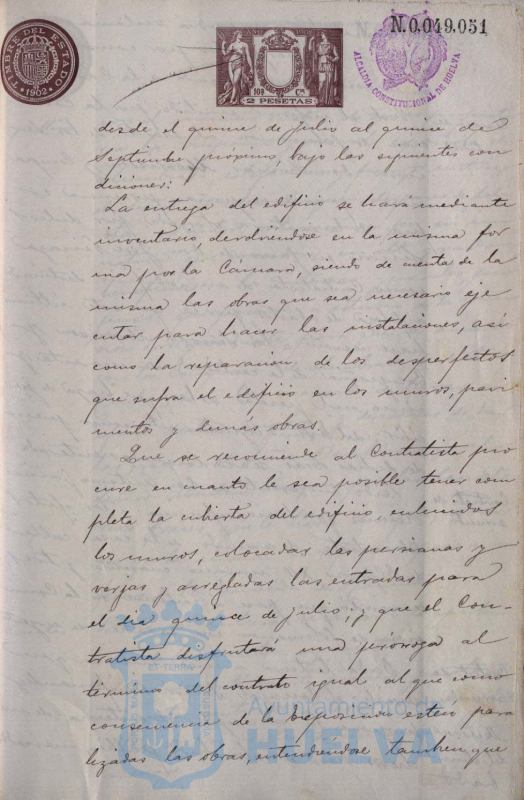 TIMBRE DEL ESTADO
1902
10ª Cª
2 PESETAS
N.0.049.051
ALCALDIA CONSTITUCIONAL DE HUELVA
desde el quince de Julio al quince de
Septiembre próximo, bajo las siguientes con
diciones:
La entrega del edificio se hará mediante
inventario, devolviéndose en la misma for
ma por la Cámara, siendo de cuenta de la
misma las obras que sea necesario eje
cutar para hacer las instalaciones, así
como la reparacion de los desperfectos
que sufra el edificio en los muros, pavi
mentos y demás obras.
Que se recomiende al Contratista pro
cure en cuanto le sea posible tener com
pleta la cubierta del edificio, enlucidos
los muros, colocadas las persianas y
verjas y arregladas las entradas para
el dia quince de julio; y que el Con-
tratista disfrutará una prórroga al
término del contrato igual al que como
consecuencia de la Exposicion esten para
lizadas las obras, entendiendose tambien que
Ayuntamiento de
HUELVA